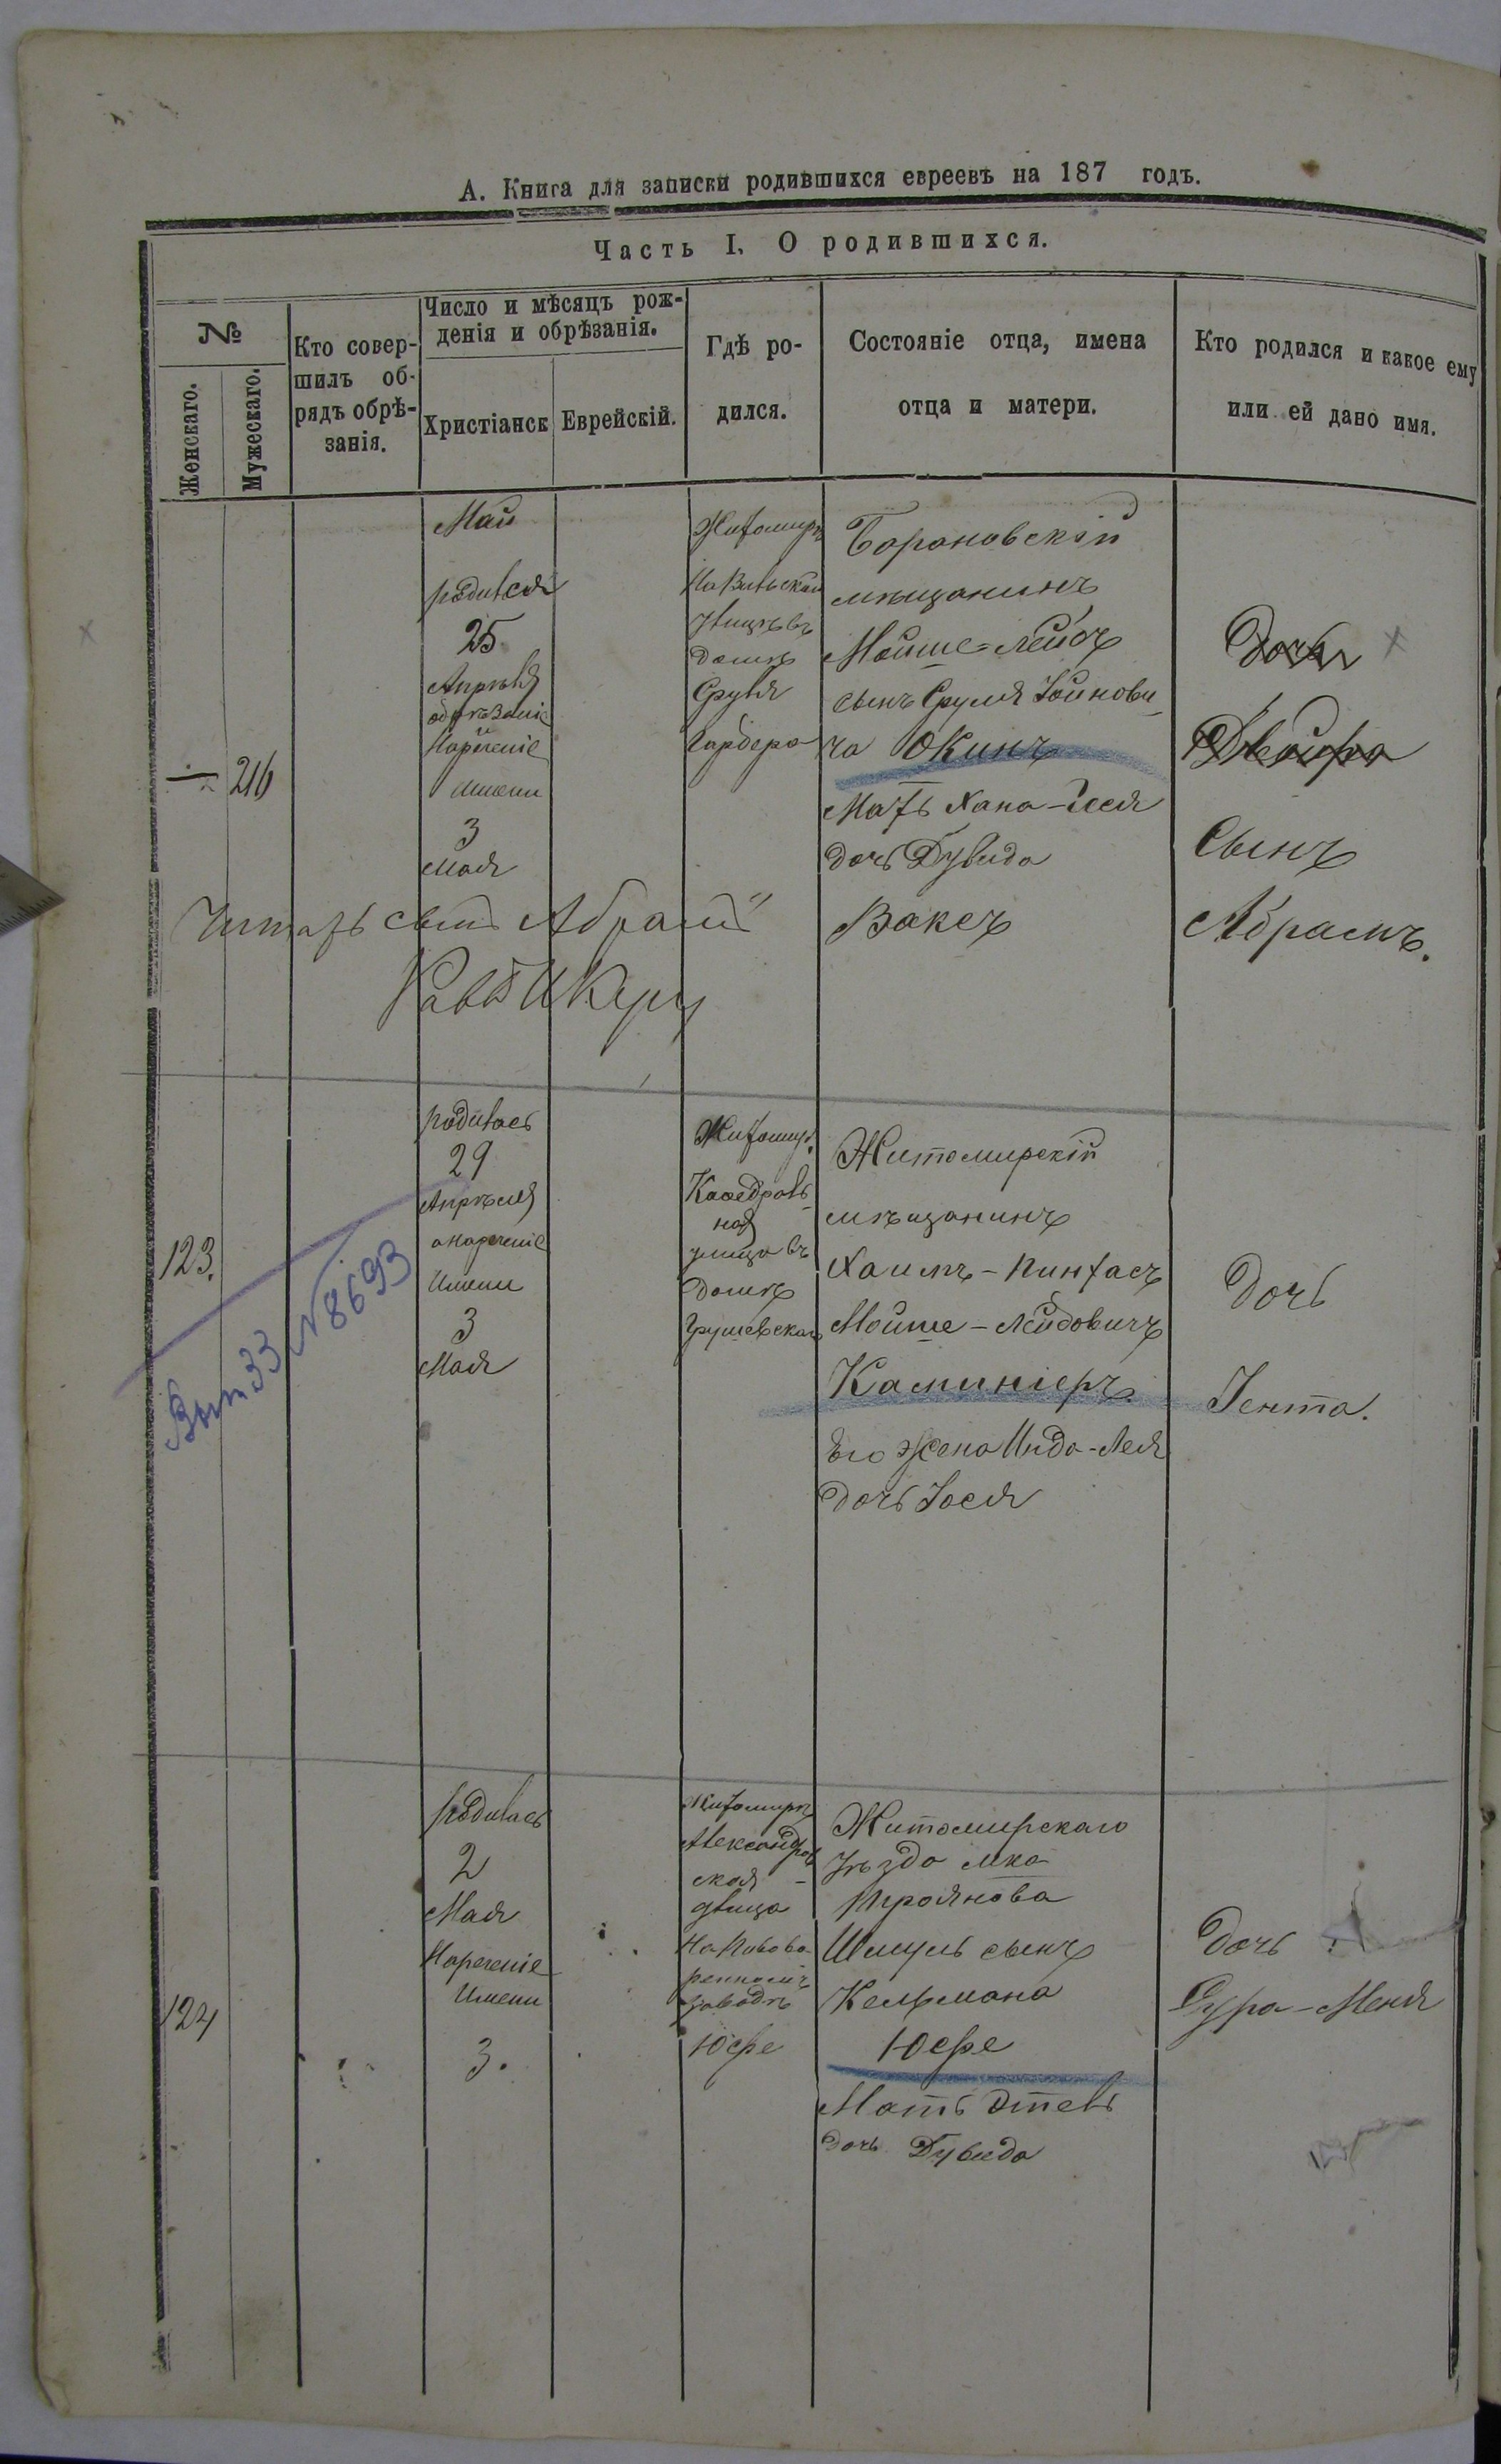 А. Книга для записки родившихся евреевъ на 187 годъ.
Часть I. О родившихся.
№
Женскаго.
Мужескаго.
Кто совер-
шилъ об-
рядъ обрѣ-
занія.
Число и мѣсяцъ рож-
денія и обрѣзанія.
Христіанск
Еврейскій.
Гдѣ ро-
дился.
Состояніе отца, имена
отца и матери.
Кто родился и какое ему
или ей дано имя.
216
Май
родился
25
Апрѣля
обрѣзаніе
и
Нареченіе
имени
3
мая
Житомиръ
На Вильской
улицѣ въ
домѣ
Сруля
Гарбера
Барановскій
мѣщанинъ
Мойше-Лейбъ
сынъ Сруля Хаимови
ча Окинъ
Мать Хана-Песя
дочь Дувида
Ваксъ
Дочь
Двойра
Сынъ
Абрамъ.
Читать сынъ „Абрамъ"
123.
родилась
29
Апрѣля
а нареченіе
Имени
3
Мая
Житомир.
Каѳедраль
ная
улица въ
домѣ
Грушевскаго
Житомирскій
мѣщанинъ
Хаимъ-Пинхасъ
Мойше-Лейбовичъ
Каминіеръ.
Его жена Инда-Лея
дочь Іося
Дочь
Іента.
Вып 33 N 8693
124
родилась
2
Мая
Нареченіе
Имени
3.
Житомиръ
Александров
ская -
улица
На Пивова-
ренномъ
заводѣ
Юфе
Житомирскаго
Уѣзда мка
Троянова
Шмуль сынъ
Кельмана
Юфе
Мать Этель
дочь Дувида
Дочь
Сура-Меня